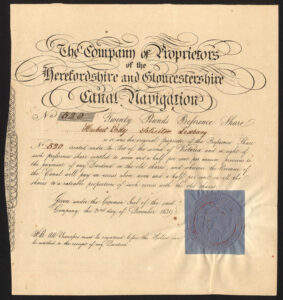 The Company of Proprietors
of the
Herefordshire and Gloucestershire
Canal Navigation
No 520 Twenty Pounds Preference Share
Solicitor Ledbury
is now the registered Proprietor of the Preference Share
No 520 created under the Act of the of Victoria and in right of
such preference share entitled to seven and a half per cent per annum previous to
the payment of any Dividend on the old shares and whenever the Revenue of
the Canal will pay on excess above seven and a half per cent on all the
shares to a rateable proportion of such excess with the other shares
Given under the Common Seal of the said
Company, the day of December
N.B. All Transfers must be registered before the Holders can
be entitled to the receipt of any Dividend